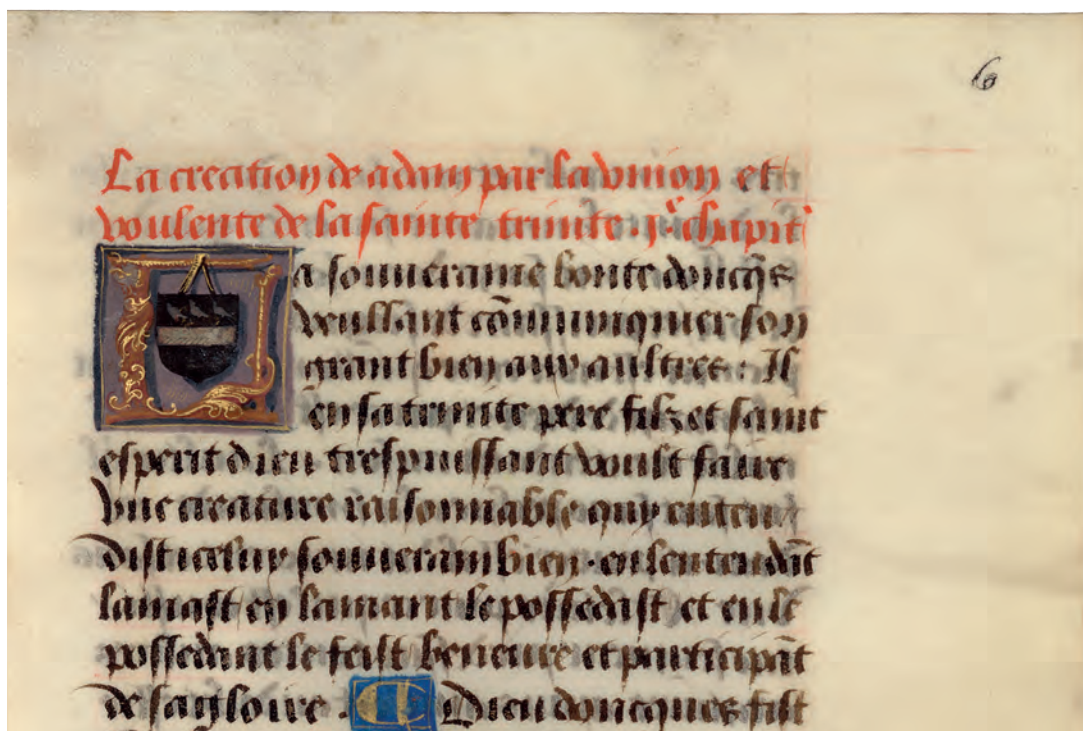 6
La creation de adam par la vnion et
voulente de la sainte trinite . j.e chapitr
La souueraine bonte doncq̄s
veullant cōmuniquier son
grant bien aux aultres : Il
en sa trinite pere filz et saint
esperit dieu trespuissant voult faire
vne creature raisonnable quy enten
dist icelluy souuerain bien . en lentendāt
lamast en lamant le possedast et en le
possedant le feist beneure et participāt
de sa gloire . Dieu doncques fist